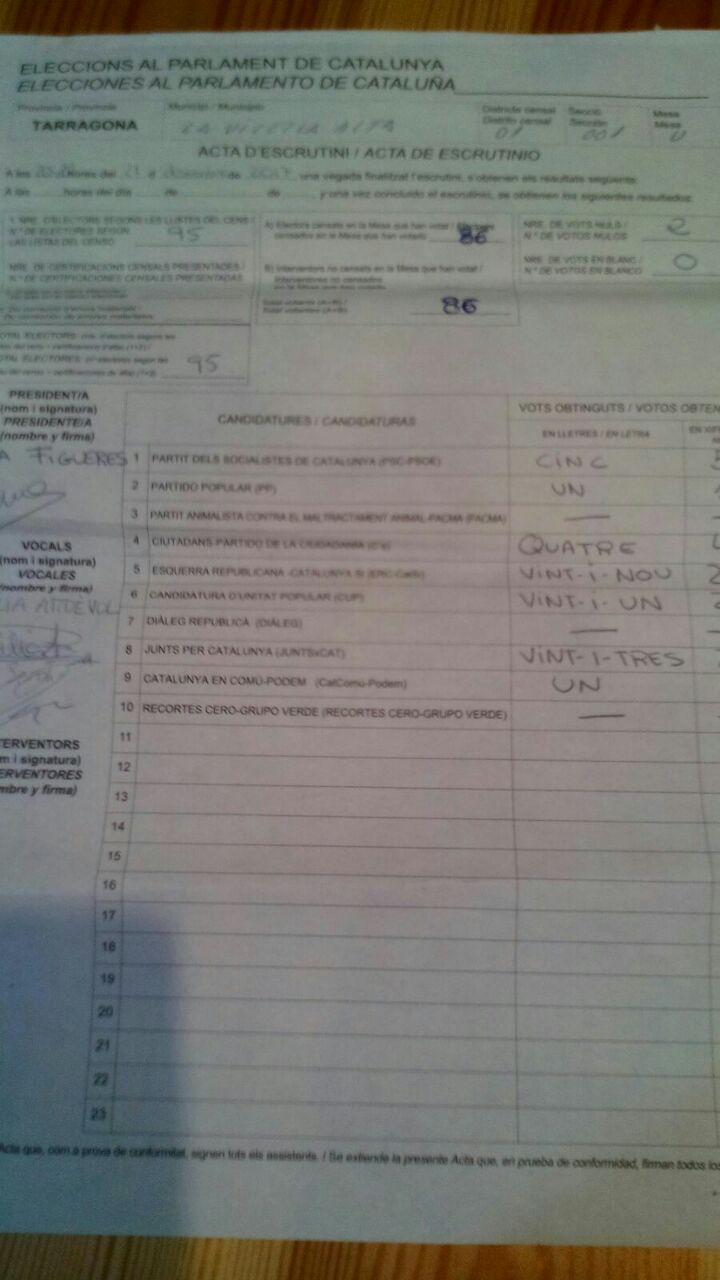 ELECCIONS AL PARLAMENT DE CATALUNYA
ELECCIONES AL PARLAMENTO DE CATALUÑA
Província / Provincia
Municipi / Municipio
Districte censal
Distrito censal
Secció
Sección
Mesa
Mesa
TARRAGONA
LA ALTA
01
001
U
ACTA D'ESCRUTINI / ACTA DE ESCRUTINIO
A les hores del 21 d de una vegada finalitzat l'escrutini, s'obtenen els resultats següents:
A las horas del día de de , y una vez concluido el escrutinio, se obtienen los siguientes resultados:
1. NRE. D'ELECTORS SEGONS LES LLISTES DEL CENS /
N.º DE ELECTORES SEGÚN
LAS LISTAS DEL CENSO
95
A) Electors censats en la Mesa que han votat /
censados en la Mesa que han votado
86
NRE. DE VOTS NULS /
N.º DE VOTOS NULOS
2
NRE. DE CERTIFICACIONS CENSALS PRESENTADES /
N.º DE CERTIFICACIONES CENSALES PRESENTADAS
B) Interventors no censats en la Mesa que han votat /
Interventores no censados
en la Mesa que han votado
NRE. DE VOTS EN BLANC /
N.º DE VOTOS EN BLANCO
0
Total votants (A+B) /
Total votantes (A+B)
86
95
PRESIDENT/A
(nom i signatura)
PRESIDENTE/A
(nombre y firma)
A FIGUERES
VOCALS
(nom i signatura)
VOCALES
(nombre y firma)
CANDIDATURES / CANDIDATURAS
VOTS OBTINGUTS / VOTOS OBTEN
EN LLETRES / EN LETRA
1 PARTIT DELS SOCIALISTES DE CATALUNYA (PSC-PSOE) CINC
2 PARTIDO POPULAR (PP) UN
3 PARTIT ANIMALISTA CONTRA EL MALTRACTAMENT ANIMAL-PACMA (PACMA) —
4 CIUTADANS-PARTIDO DE LA CIUDADANÍA (C's) QUATRE
5 ESQUERRA REPUBLICANA -CATALUNYA SÍ (ERC-CatSí) VINT-I-NOU
6 CANDIDATURA D'UNITAT POPULAR (CUP) VINT-I-UN
7 DIÀLEG REPUBLICÀ (DIÀLEG) —
8 JUNTS PER CATALUNYA (JUNTSxCAT) VINT-I-TRES
9 CATALUNYA EN COMÚ-PODEM (CatComú-Podem) UN
10 RECORTES CERO-GRUPO VERDE (RECORTES CERO-GRUPO VERDE) —
11
12
13
14
15
16
17
18
19
20
21
22
23
TERVENTORS
m i signatura)
ERVENTORES
mbre y firma)
Acta que, com a prova de conformitat, signen tots els assistents. / Se extiende la presente Acta que, en prueba de conformidad, firman todos los